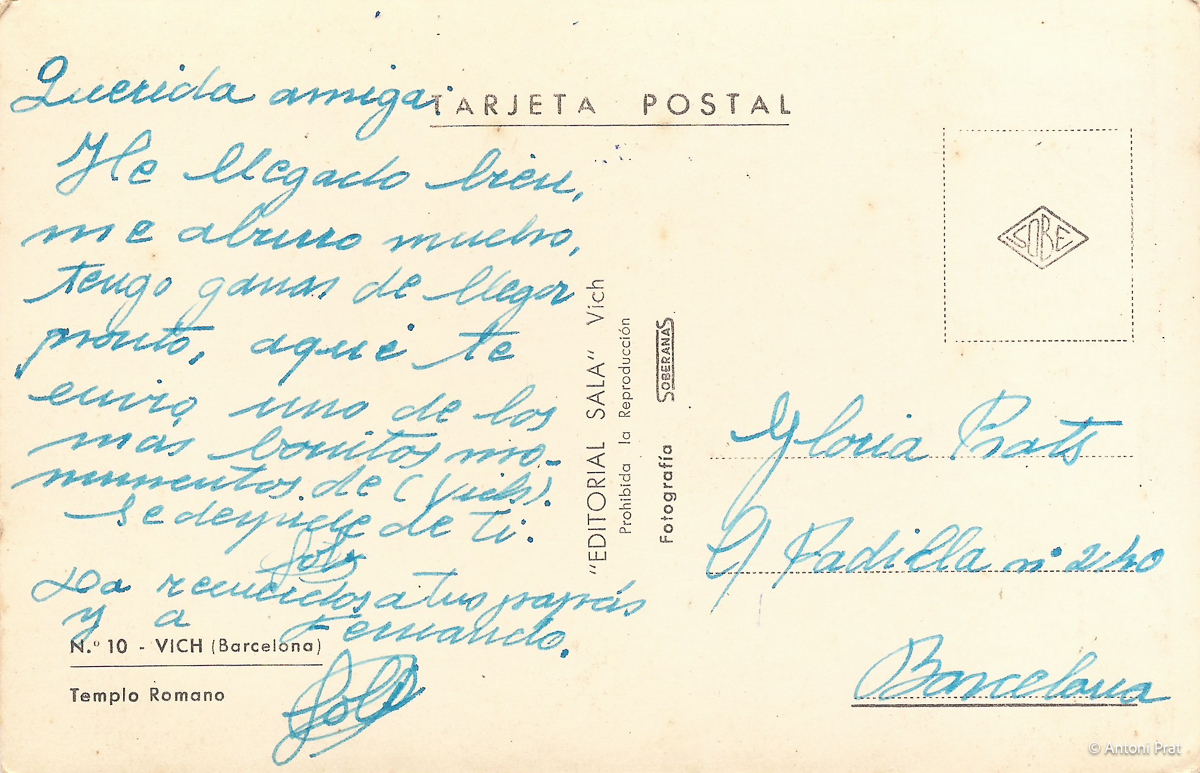 Querida amiga:
TARJETA POSTAL
He llegado bien,
me aburro mucho,
tengo ganas de llegar
pronto, aqui te
envio uno de los
mas bonitos mo-
numentos de (Vich).
Se despide de ti:
Loli
Da recuerdos a tus papás
y a Fernando.
Loli
N.º 10 - VICH (Barcelona)
Templo Romano
"EDITORIAL SALA" Vich
Prohibida la Reproducción
Fotografía SOBERANAS
SOBE
Gloria Prats
C/ Padilla nº 240
Barcelona
© Antoni Prat